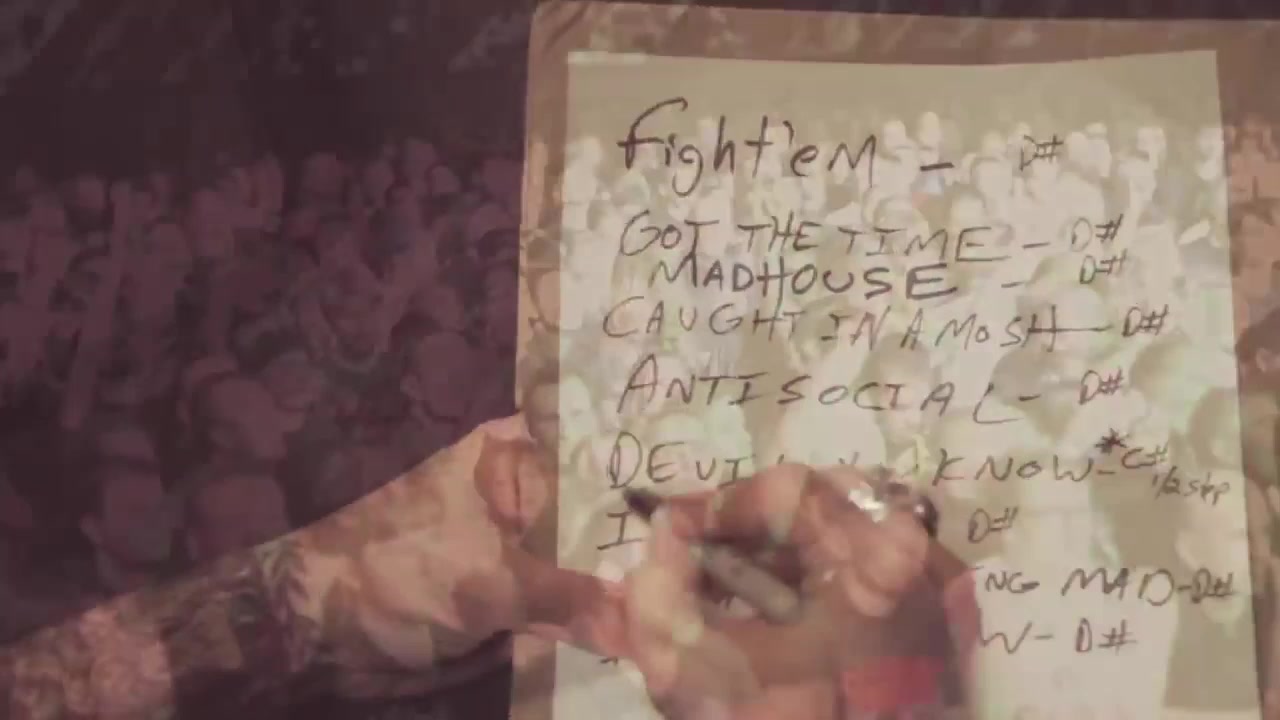 fight'em - D#
GOT THE TIME - D#
MADHOUSE - D#
CAUGHT IN A MOSH - D#
ANTISOCIAL - D#
KNOW - *C#
1/2 step
I D#
NG MAD - D#
W - D#